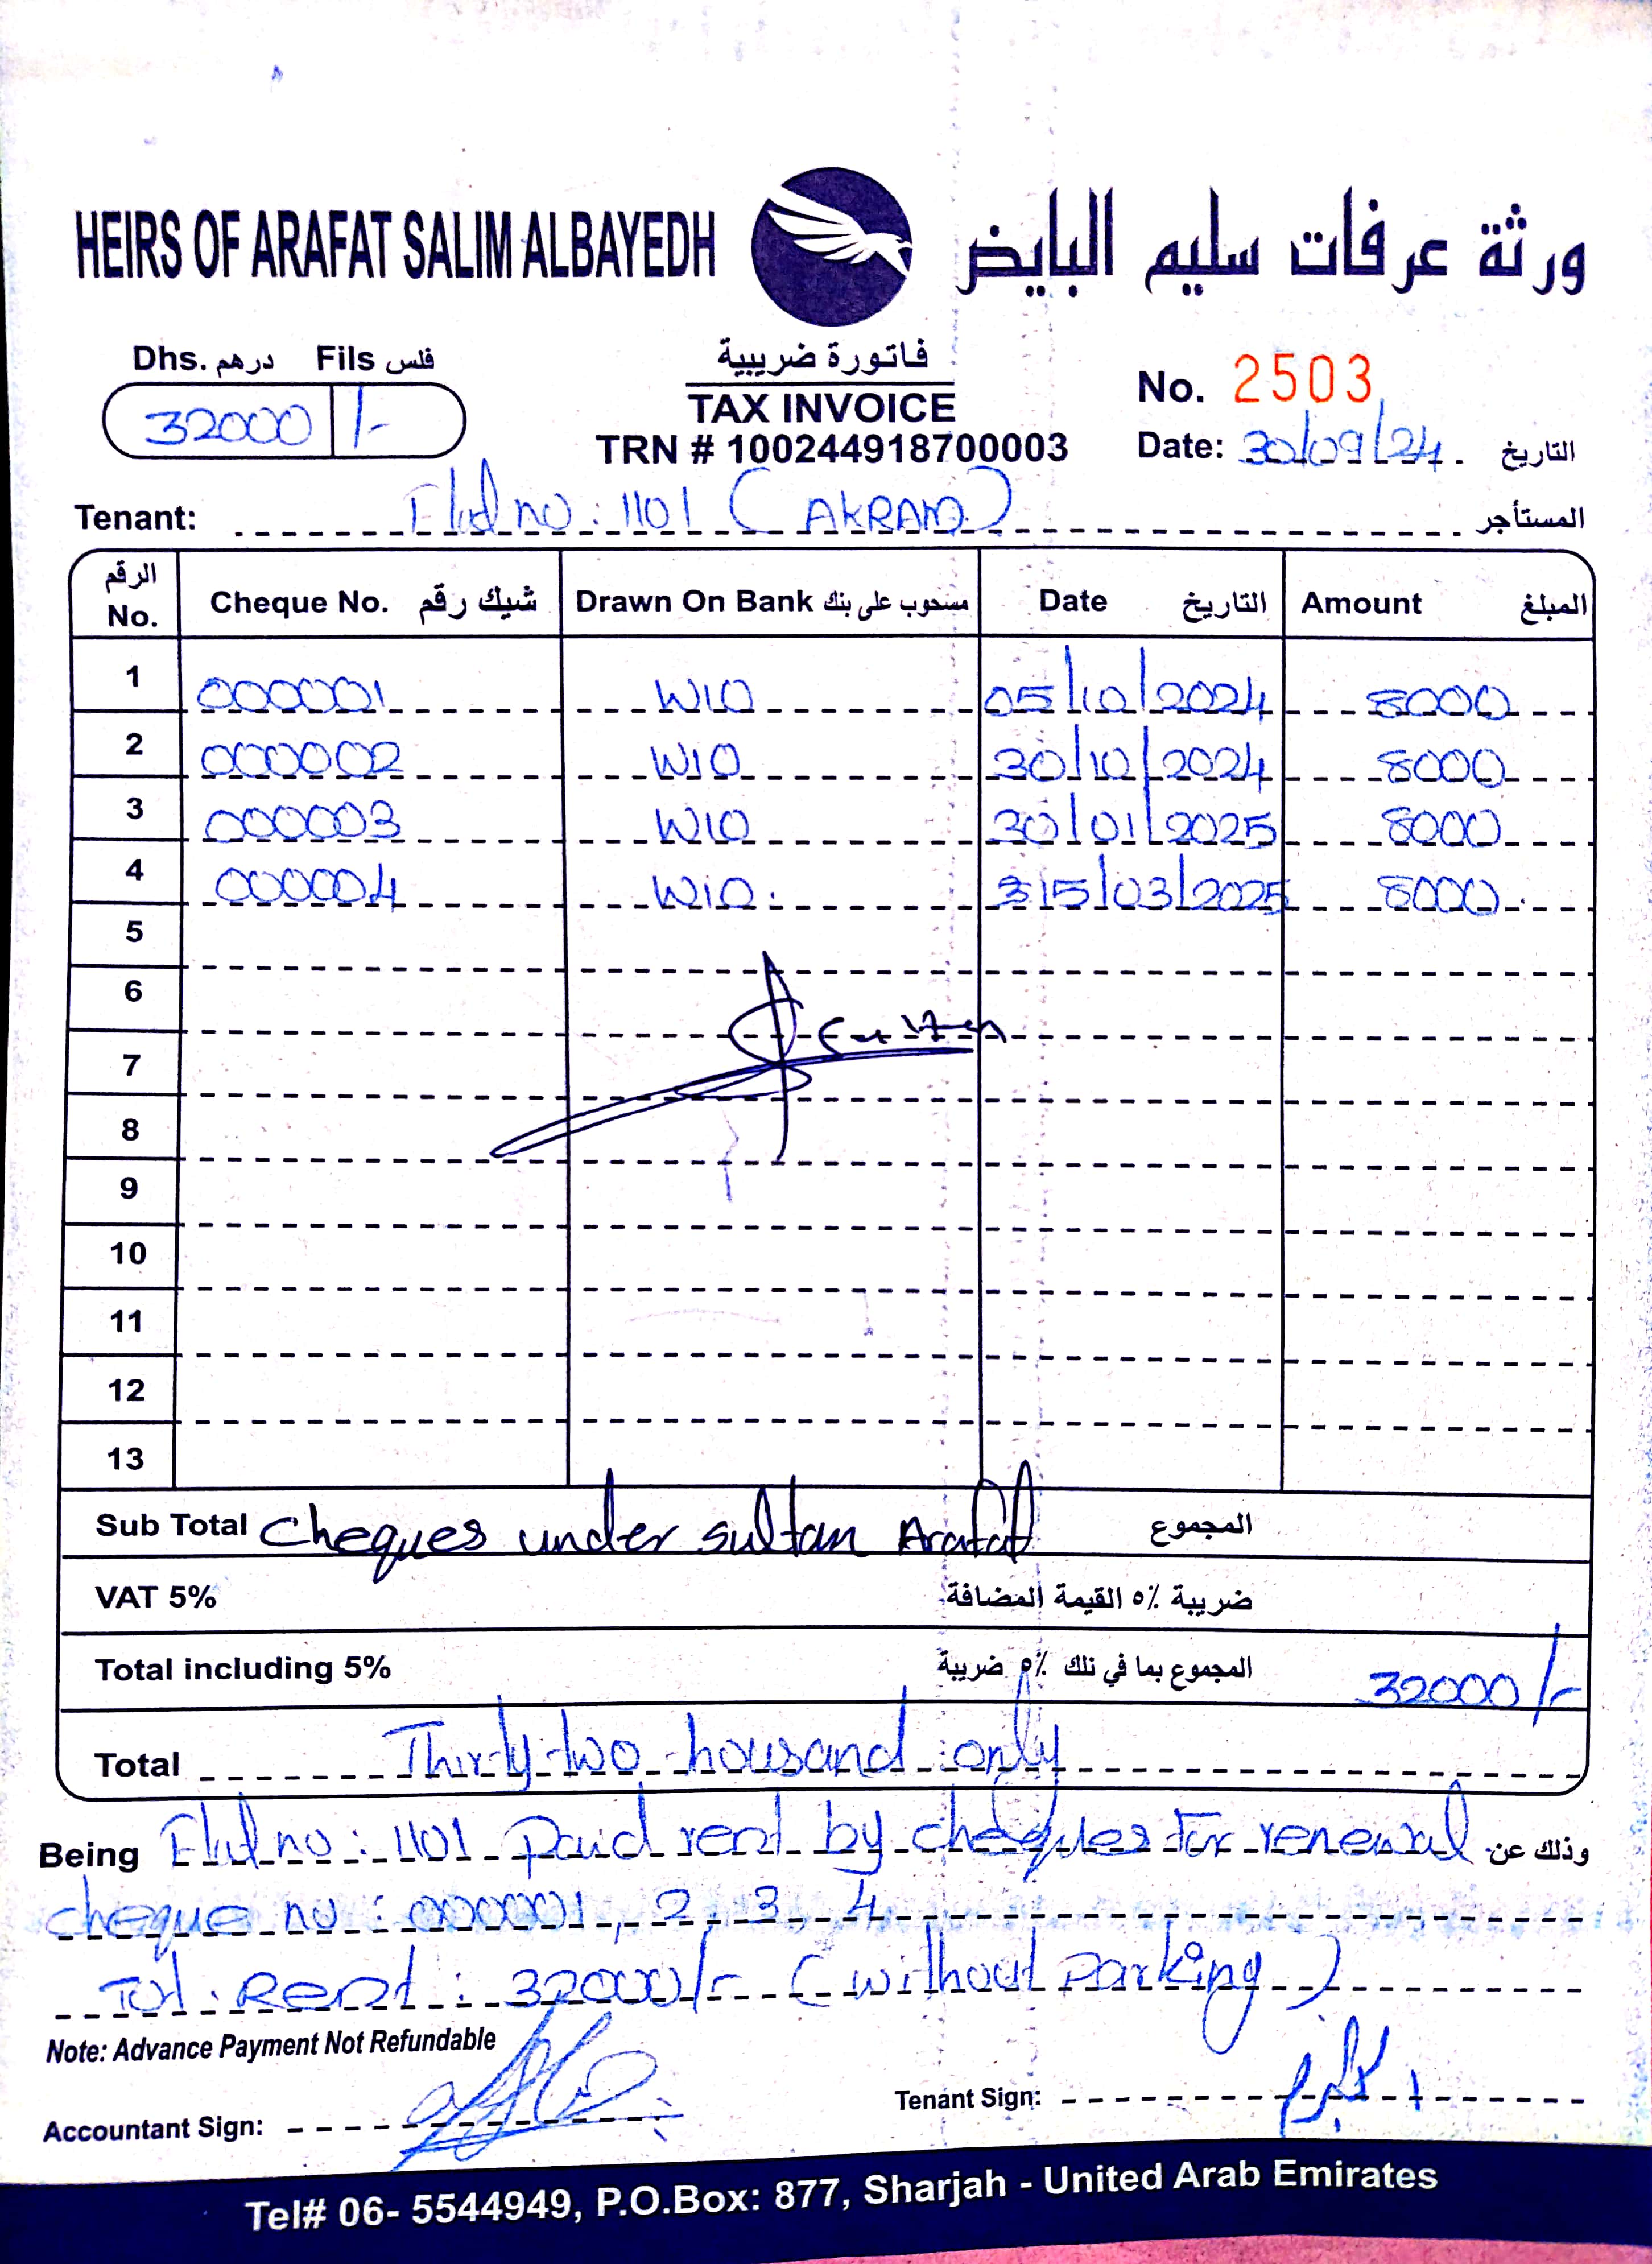 HEIRS OF ARAFAT SALIM ALBAYEDH ورثة عرفات سليم البايض
Dhs. درهم Fils فلس
32000 /-
فاتورة ضريبية
TAX INVOICE
TRN # 100244918700003
No. 2503
Date: 30/09/24. التاريخ
Tenant: Flat no: 1101 (AKRAM) المستأجر
الرقم No. Cheque No. شيك رقم Drawn On Bank مسحوب على بنك Date التاريخ Amount المبلغ
1 000001 WIO 05/10/2024 8000
2 000002 WIO 30/10/2024 8000
3 000003 WIO 30/01/2025 8000
4 000004 WIO. 15/03/2025 8000.
5
6
7
8
9
10
11
12
13
Sub Total Cheques under sultan Arafat المجموع
VAT 5% ضريبة ٥٪ القيمة المضافة
Total including 5% المجموع بما في نلك ٥٪ ضريبة 32000/-
Total Thirty two thousand only
Being Flat no: 1101 Paid rent by cheques for renewal وذلك عن
cheque no: 000001, 2, 3, 4
Tot. Rent: 32000/- (without Parking)
Note: Advance Payment Not Refundable
Accountant Sign:
Tenant Sign: اكرم
Tel# 06- 5544949, P.O.Box: 877, Sharjah - United Arab Emirates